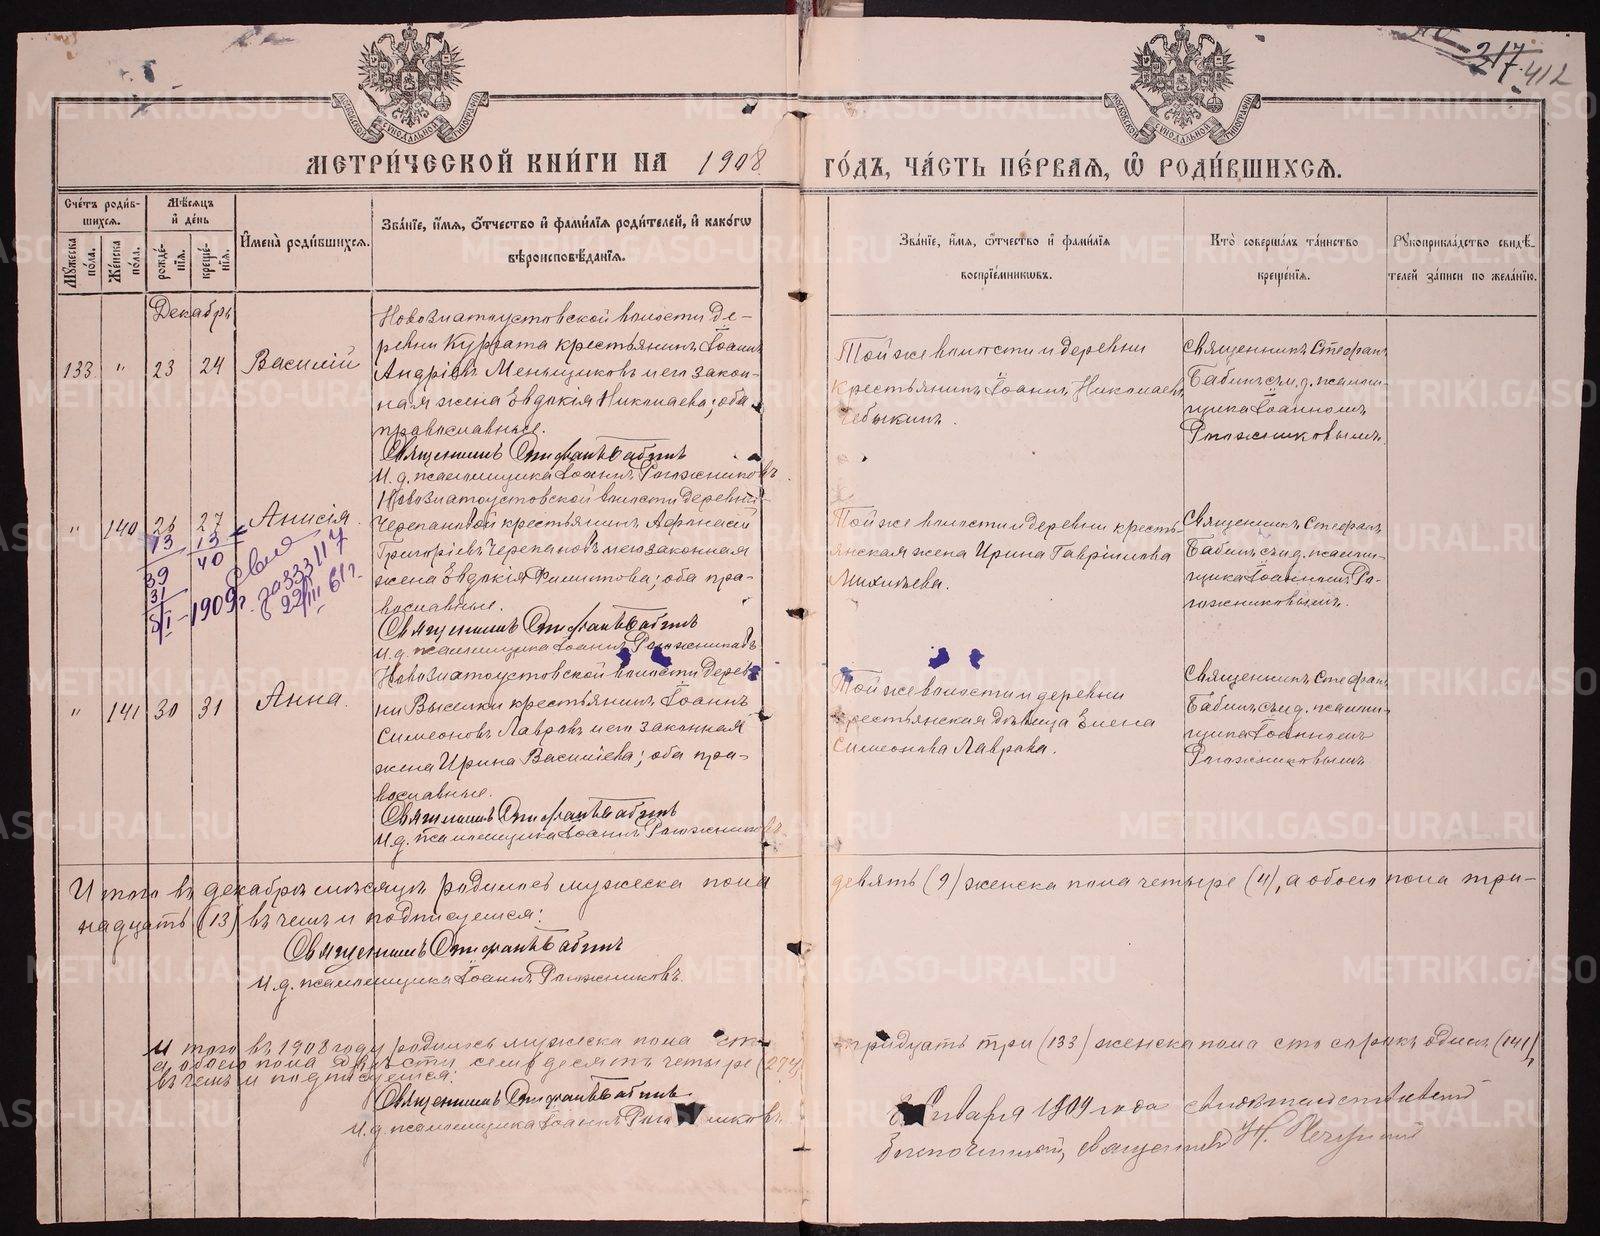 217.
412
МЕТРИ́ЧЕСКОЙ КНИ́ГИ НА 1908
ГО́ДЪ, ЧА́СТЬ ПЕ́РВАЯ, Ѡ҆ РОДИ́ВШИХСЯ.
Сче́тъ роди́в-
шихся.
Му́жеска
по́ла.
Же́нска
по́ла.
Мѣ́сяцъ
и҆ де́нь
рожде́-
нїя.
креще́-
нїя.
И҆мена̀ роди́вшихся.
Зва́нїе, и҆́мя, ѻ҆́тчество и҆ фами́лїя роди́телей, и҆ како́гѡ
вѣроисповѣ́данїя.
Зва́нїе, и҆́мя, ѻ҆́тчество и҆ фами́лїя
воспрїе́мникѡвъ.
Кто̀ соверша́лъ та́инство
креще́нїя.
Рꙋкоприкла́дство свидѣ́-
телей за́писи по жела́нїю.
Декабрь
133 " 23 24 Василій
Новозлатоустовской волости де-
ревни Кургата крестьянинъ Іоаннъ
Андріевъ Меньщиковъ и его закон-
ная жена Евдокія Николаева; оба
православные.
Священникъ Стефанъ Бабинъ
И. д. псаломщика Іоаннъ Рогожниковъ
Той же волости и деревни
крестьянинъ Іоаннъ Николаевъ
Чебыкинъ.
Священникъ Стефанъ
Бабинъ съ и. д. псалом-
щика Іоанномъ
Рогожниковымъ.
" 140 26 27 Анисія.
13 13
39 40
31
8/I – 1909 г.
22/III 61 г.
Новозлатоустовской волости деревни
Черепановой крестьянинъ Афанасій
Григоріевъ Черепановъ и его законная
жена Евдокія Филиппова; оба пра-
вославные.
Священникъ Стефанъ Бабинъ
И. д. псаломщика Іоаннъ Рогожниковъ
Той же волости и деревни кресть-
янская жена Ирина Гавріилова
Священникъ Стефанъ
Бабинъ съ и. д. псалом-
щика Іоанномъ Ро-
гожниковымъ.
" 141 30 31 Анна.
Новозлатоустовской волости дерев-
ни Выселки крестьянинъ Іоаннъ
Симеоновъ Лавровъ и его законная
жена Ирина Васильева; оба пра-
вославные.
Священникъ Стефанъ Бабинъ
И. д. псаломщика Іоаннъ Рогожниковъ
Той же волости и деревни
крестьянская дѣвица Елена
Симеонова Лаврова.
Священникъ Стефанъ
Бабинъ съ и. д. псалом-
щика Іоанномъ
Рогожниковымъ
Итого въ декабрѣ мѣсяцѣ родилось мужеска пола девять (9) женска пола четыре (4), а обоего пола три-
надцать (13) въ чемъ и подписуемся:
Священникъ Стефанъ Бабинъ
И. д. псаломщика Іоаннъ Рогожниковъ.
Итого въ 1908 году родилось мужеска пола сто тридцать три (133) женска пола сто сорокъ одинъ (141),
а обоего пола двѣсти семьдесятъ четыре (274)
въ чемъ и подписуемся:
Священникъ Стефанъ Бабинъ
И. д. псаломщика Іоаннъ Рогожниковъ.
Января 1909 года свидѣтельствовалъ
Благочинный, священникъ Н.
METRIKI.GASO-URAL.RU